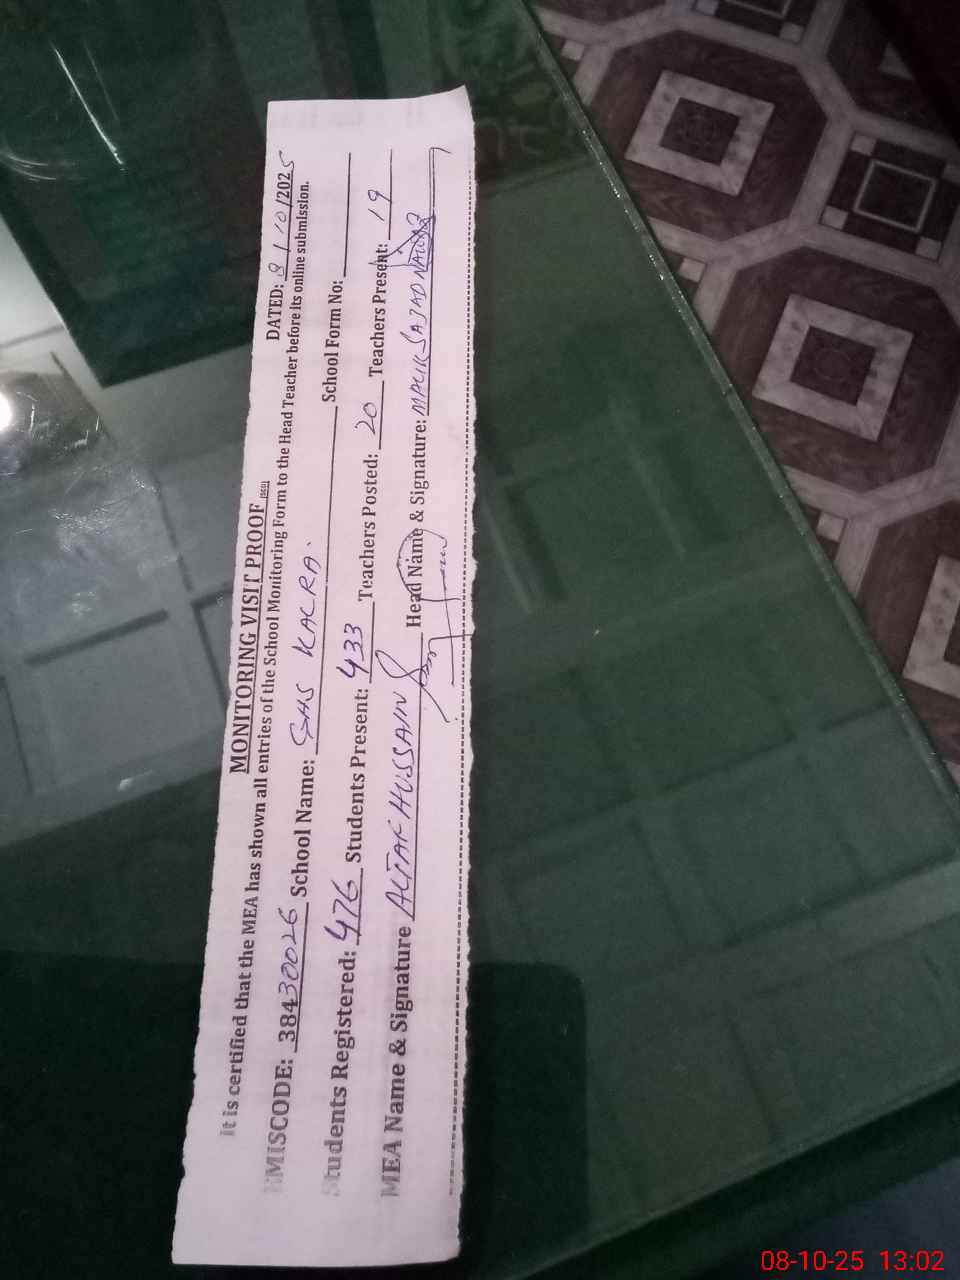 MONITORING VISIT PROOF
DATED: 8/10/2025
It is certified that the MEA has shown all entries of the School Monitoring Form to the Head Teacher before its online submission.
EMISCODE: 38430026 School Name: GHS KALRA. School Form No:
Students Registered: 476 Students Present: 433 Teachers Posted: 20 Teachers Present: 19
MEA Name & Signature ALTAF HUSSAIN Head Name & Signature: MALIK SAJAD NAWAZ
08-10-25 13:02